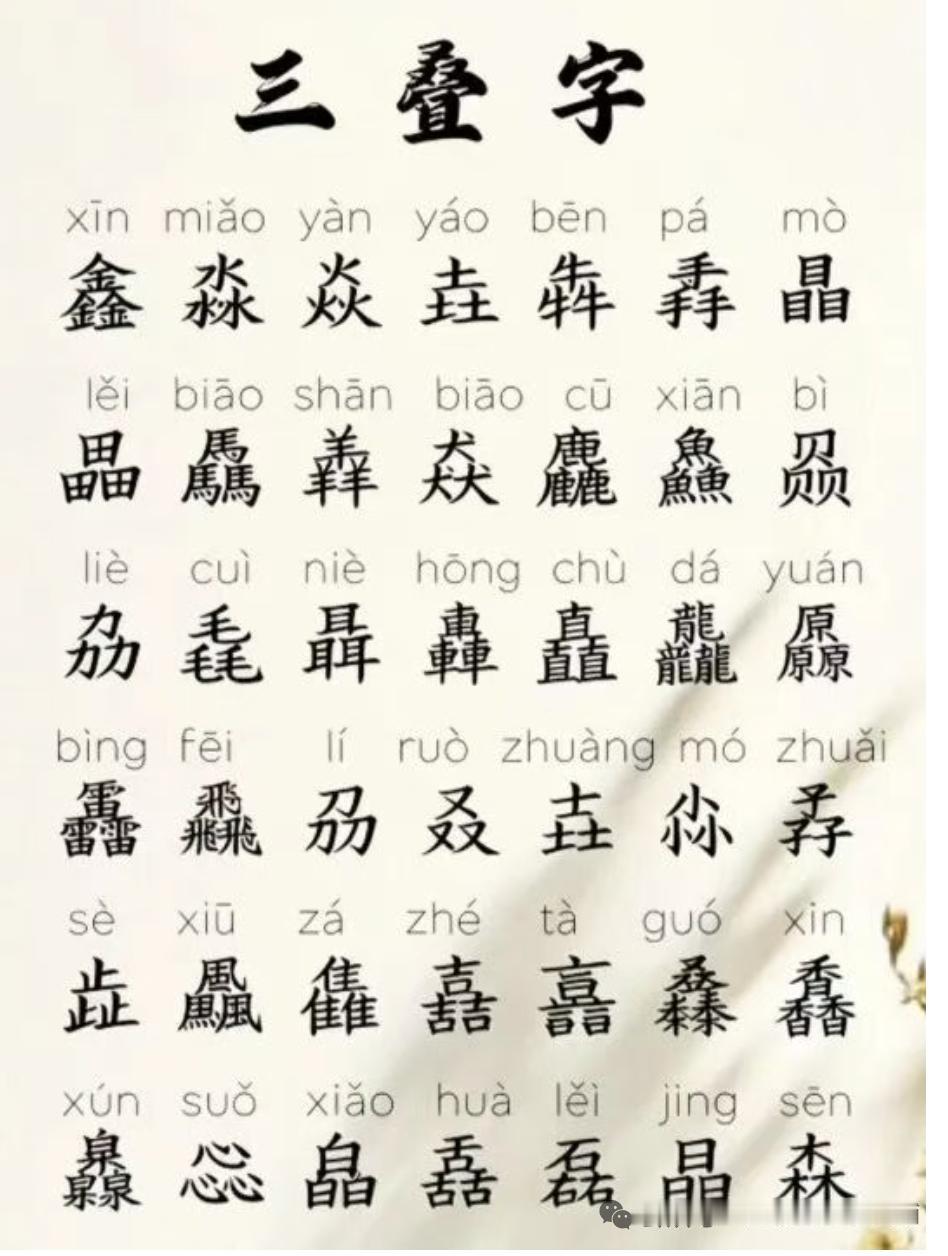 三叠字
xīn miǎo yàn yáo bēn pá mò
鑫 淼 焱 垚 犇 掱 瞐
lěi biāo shān biāo cū xiān bì
畾 驫 羴 猋 麤 鱻 赑
liè cuì niè hōng chù dá yuán
劦 毳 聶 轟 矗 龘 厵
bìng fēi lí ruò zhuàng mó zhuǎi
靐 飝 刕 叒 壵 尛 孨
sè xiū zá zhé tà guó xin
歮 飍 雥 嚞 譶 馫
xún suǒ xiǎo huà lěì jing sēn
灥 惢 皛 舙 磊 晶 森